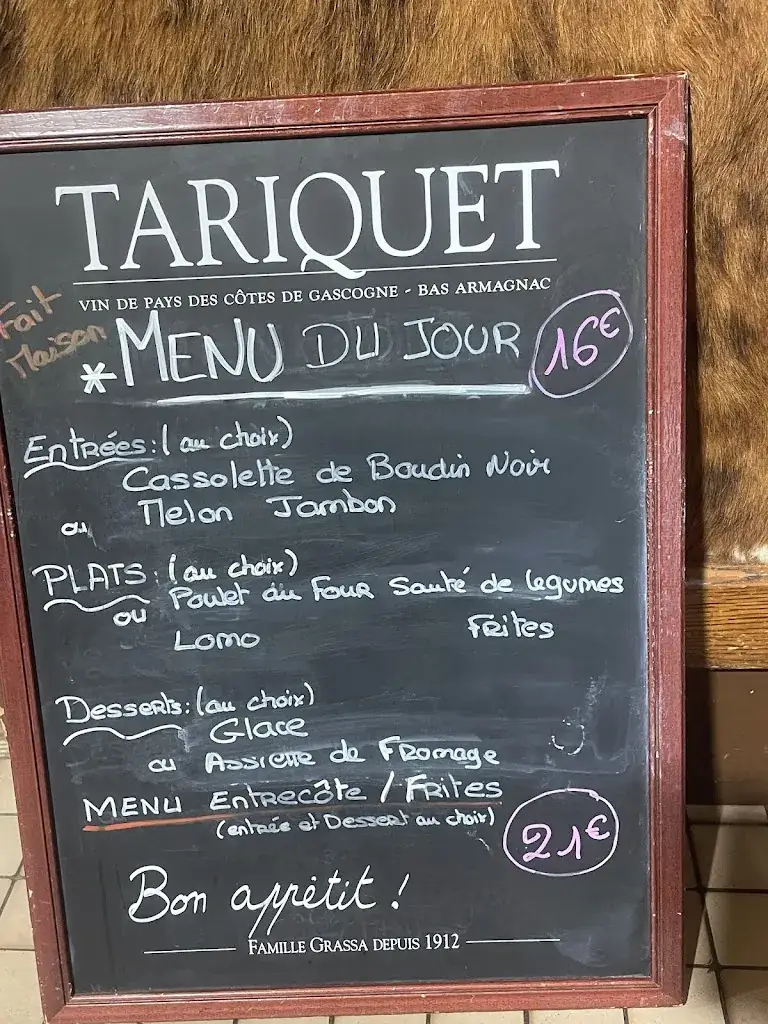 TARIQUET
VIN DE PAYS DES CÔTES DE GASCOGNE - BAS ARMAGNAC
Fait
Maison
*MENU DU JOUR 16€
Entrées: (au choix)
Cassolette de Boudin Noir
ou Melon Jambon
PLATS: (au choix)
Poulet au Four Sauté de légumes
ou
Lomo Frites
Desserts: (au choix)
Glace
ou Assiette de Fromage
MENU Entrecôte / Frites
(entrée et Dessert au choix) 21€
Bon appétit !
FAMILLE GRASSA DEPUIS 1912